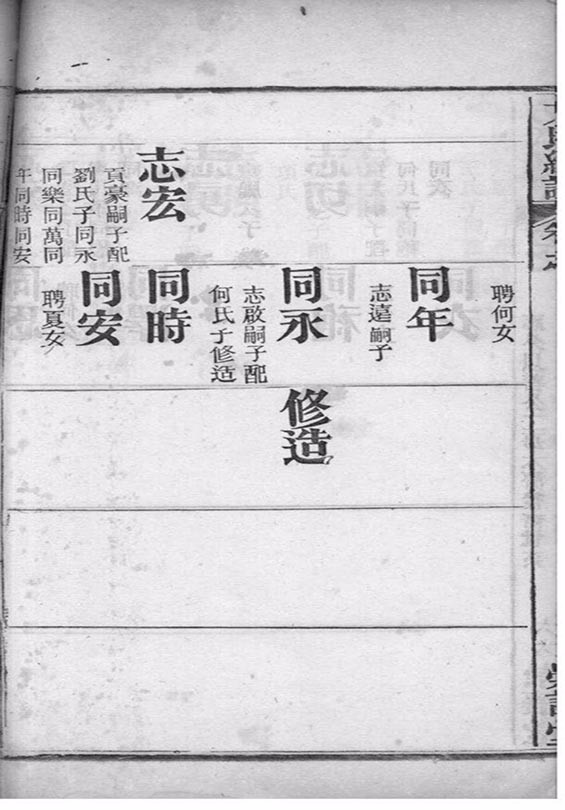 聘何女
同年
志遠嗣子
同永
志啟嗣子配
何氏子修造
修造
同時
志宏
貢豪嗣子配
劉氏子同永
同樂同萬同
年同時同安
同安
聘夏女